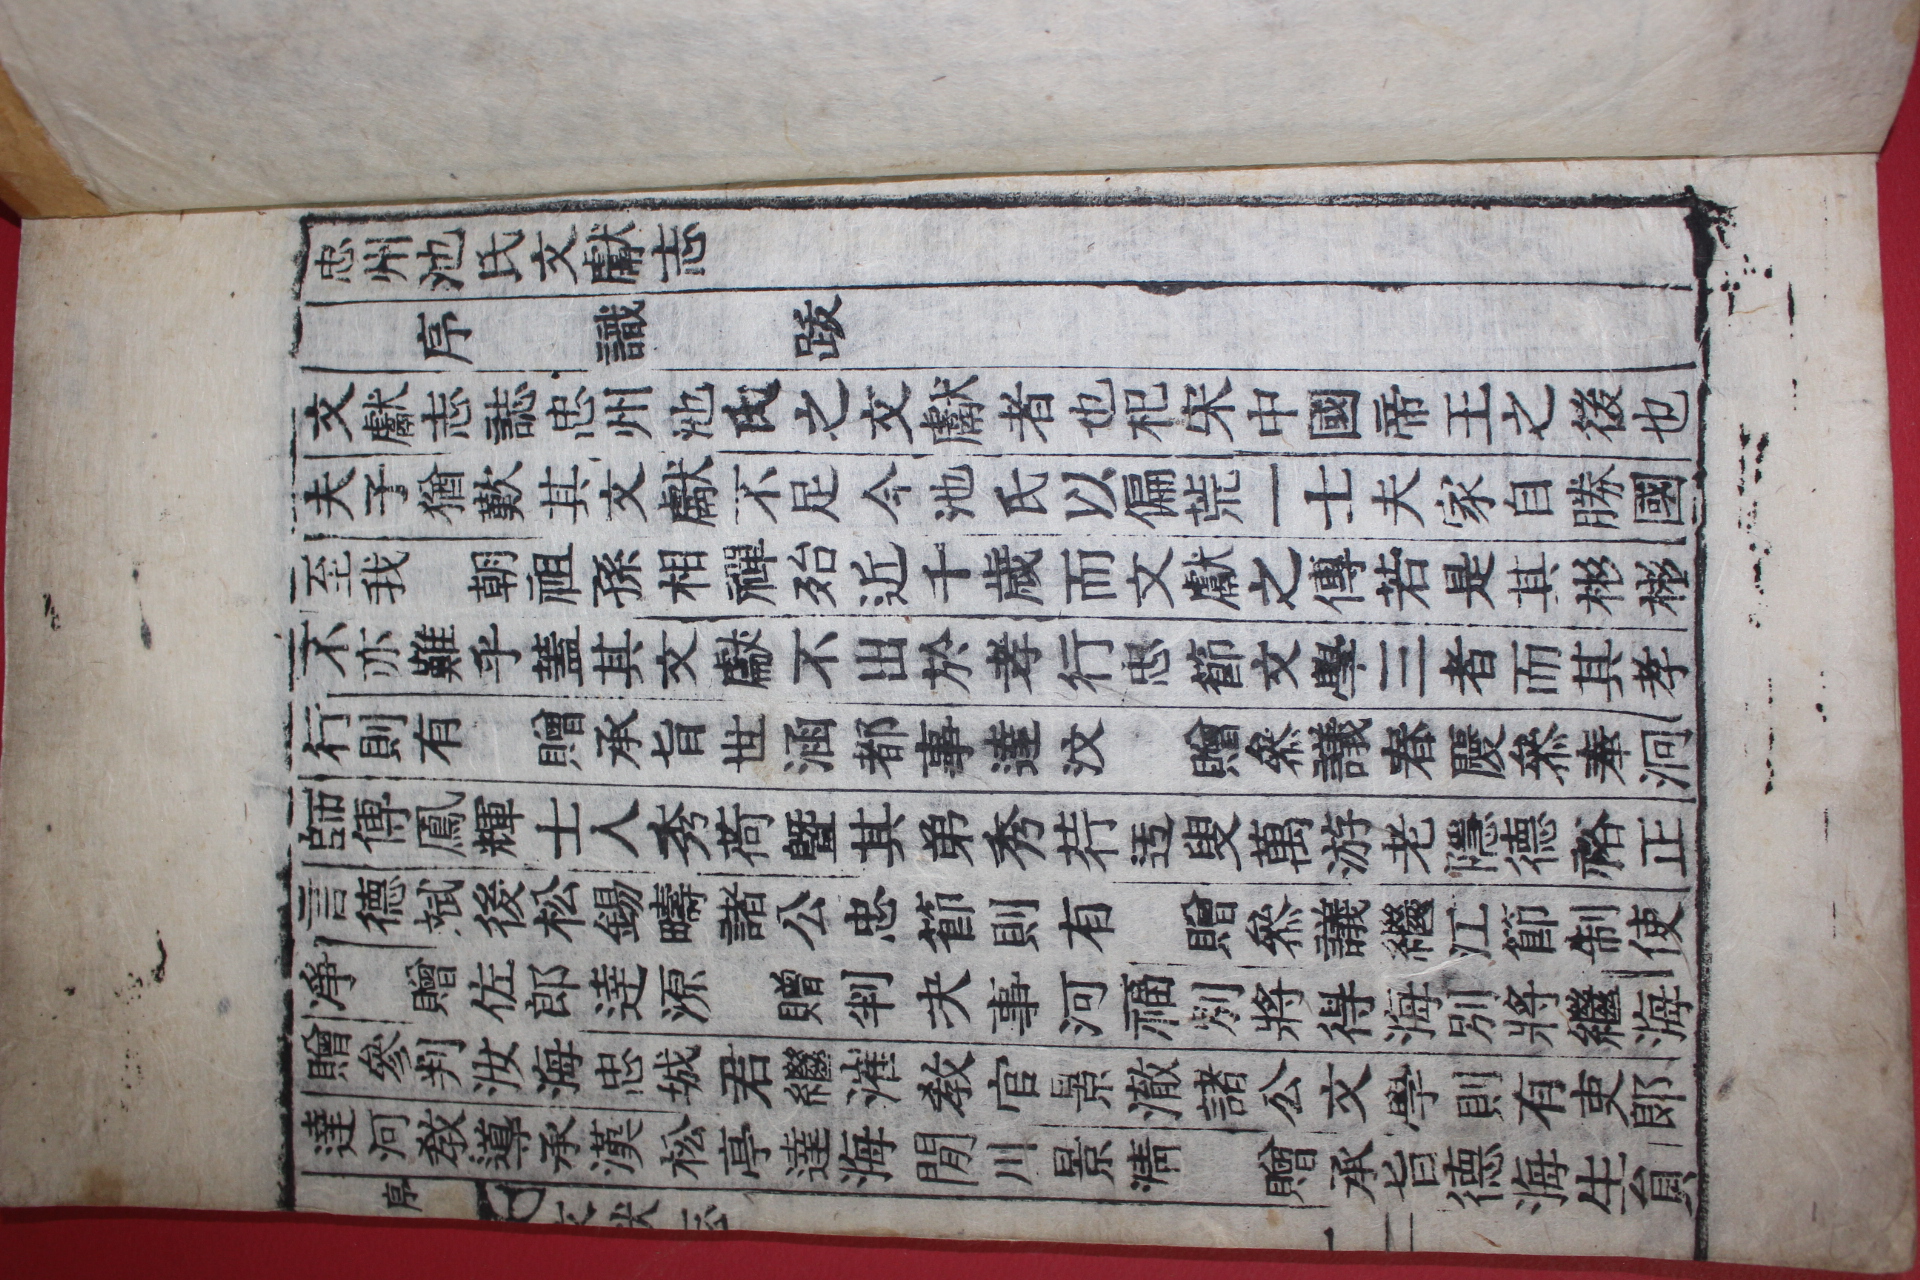 忠州池氏文獻志
序 識 跋
文獻志誌忠州池氏之文獻者也杞宋中國帝王之後也
夫子猶歎其文獻不足今池氏以偏荒一士夫家自勝國
至我 朝祖孫相禪殆近千歲而文獻之傳若是其彬彬
不亦難乎蓋其文獻不出於孝行忠節文學三者而其孝
行則有 贈承旨世涵都事達汶 贈叅議春慶叅奉泂
師傅鳳輝士人秀荷曁其弟秀荇适叟萬游老隱德裕正
言德斌後松錫疇諸公忠節則有 贈叅議繼江節制使
凈 贈佐郎達源 贈判決事河福別將得海別將繼海
贈參判汝海忠城君繼漼敎官景澈諸公文學則有吏郎
達河敎導承漢松亭達海閒川景濤 贈承旨德海生員
序